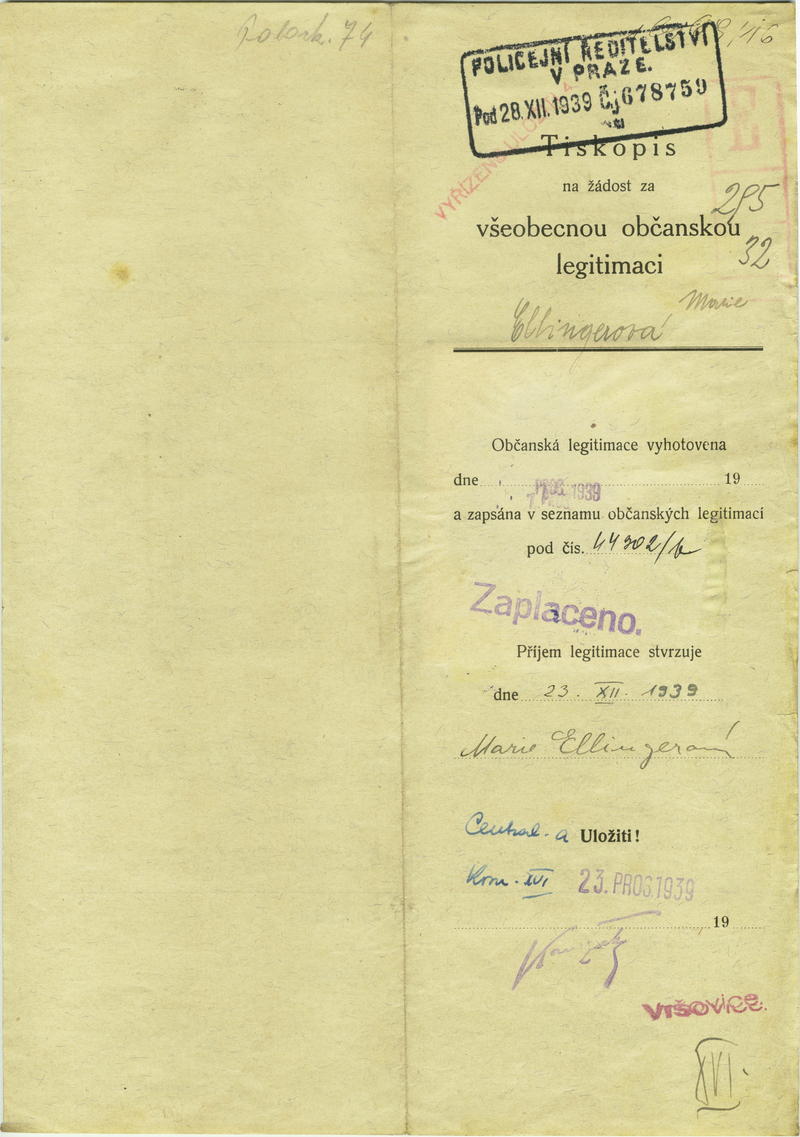 74
POLICEJNÍ ŘEDITELSTVÍ
V PRAZE.
Pod 28.XII.1939 Čj 678759
VYŘÍZENO ULOŽ
E
Tiskopis
na žádost za
295
všeobecnou občanskou
32
legitimaci
Marie
Ellingerová
Občanská legitimace vyhotovena
dne 7. PROS. 1939 19
a zapsána v seznamu občanských legitimací
pod čís. 44902/b
Zaplaceno.
Příjem legitimace stvrzuje
dne 23. XII. 1939
Marie Ellingerová
Central. a Uložiti!
Kom. XVI 23. PROS. 1939
19
Vršovice.
XVI.